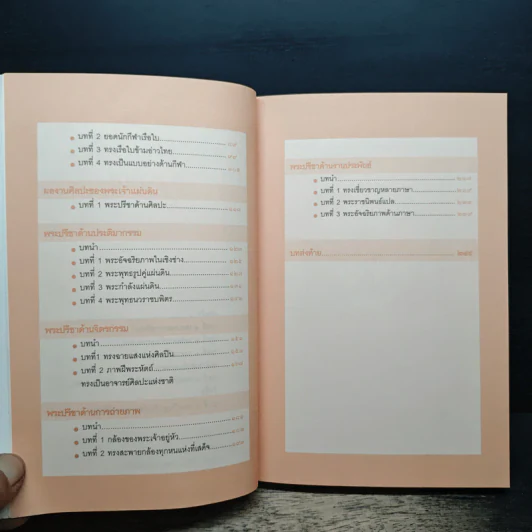 บทที่ 2 ยอดนักกีฬาเรือใบ
บทที่ 3 ทรงเรือใบข้ามอ่าวไทย
บทที่ 4 ทรงเป็นแบบอย่างด้านกีฬา
ผลงานศิลปะของพระเจ้าแผ่นดิน
บทที่ 1 พระปรีชาด้านศิลปะ
พระปรีชาด้านประติมากรรม
บทนำ
บทที่ 1 พระอัจฉริยภาพในเชิงช่าง
บทที่ 2 พระพุทธรูปคู่แผ่นดิน
บทที่ 3 พระกำลังแผ่นดิน
บทที่ 4 พระพุทธนวราชบพิตร
พระปรีชาด้านจิตรกรรม
บทนำ
บทที่1 ทรงฉายแสงแห่งศิลปิน
บทที่ 2 ภาพฝีพระหัตถ์
ทรงเป็นอาจารย์ศิลปะแห่งชาติ
พระปรีชาด้านการถ่ายภาพ
บทนำ
บทที่ 1 กล้องของพระเจ้าอยู่หัว
บทที่ 2 ทรงสะพายกล้องทุกหนแห่งที่เสด็จ
พระปรีชาด้านงานประพันธ์
บทนำ
บทที่ 1 ทรงเชี่ยวชาญหลายภาษา
บทที่ 2 พระราชนิพนธ์แปล
บทที่ 3 พระอัจฉริยภาพด้านภาษา
บทส่งท้าย